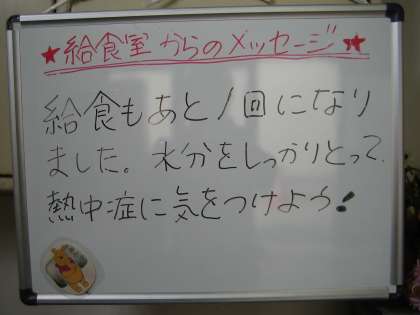 ★給食室からのメッセージ★
給食もあと1回になり
ました。水分をしっかりとって、
熱中症に気をつけよう!